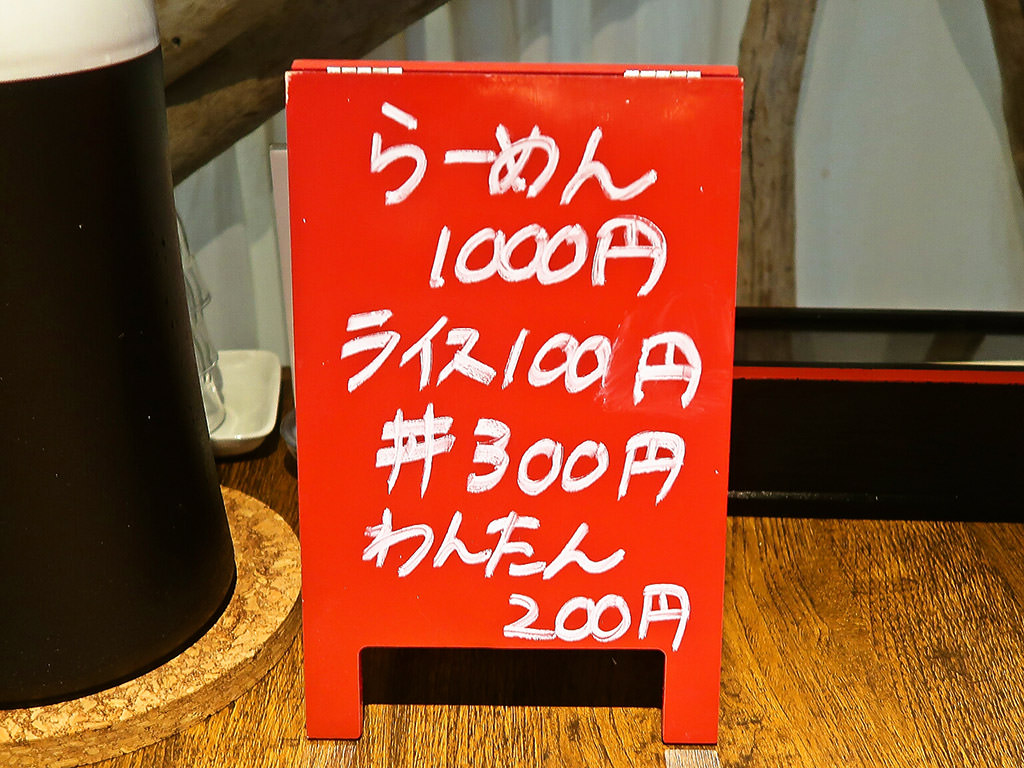 らーめん
1000円
ライス100円
丼300円
わんたん
200円